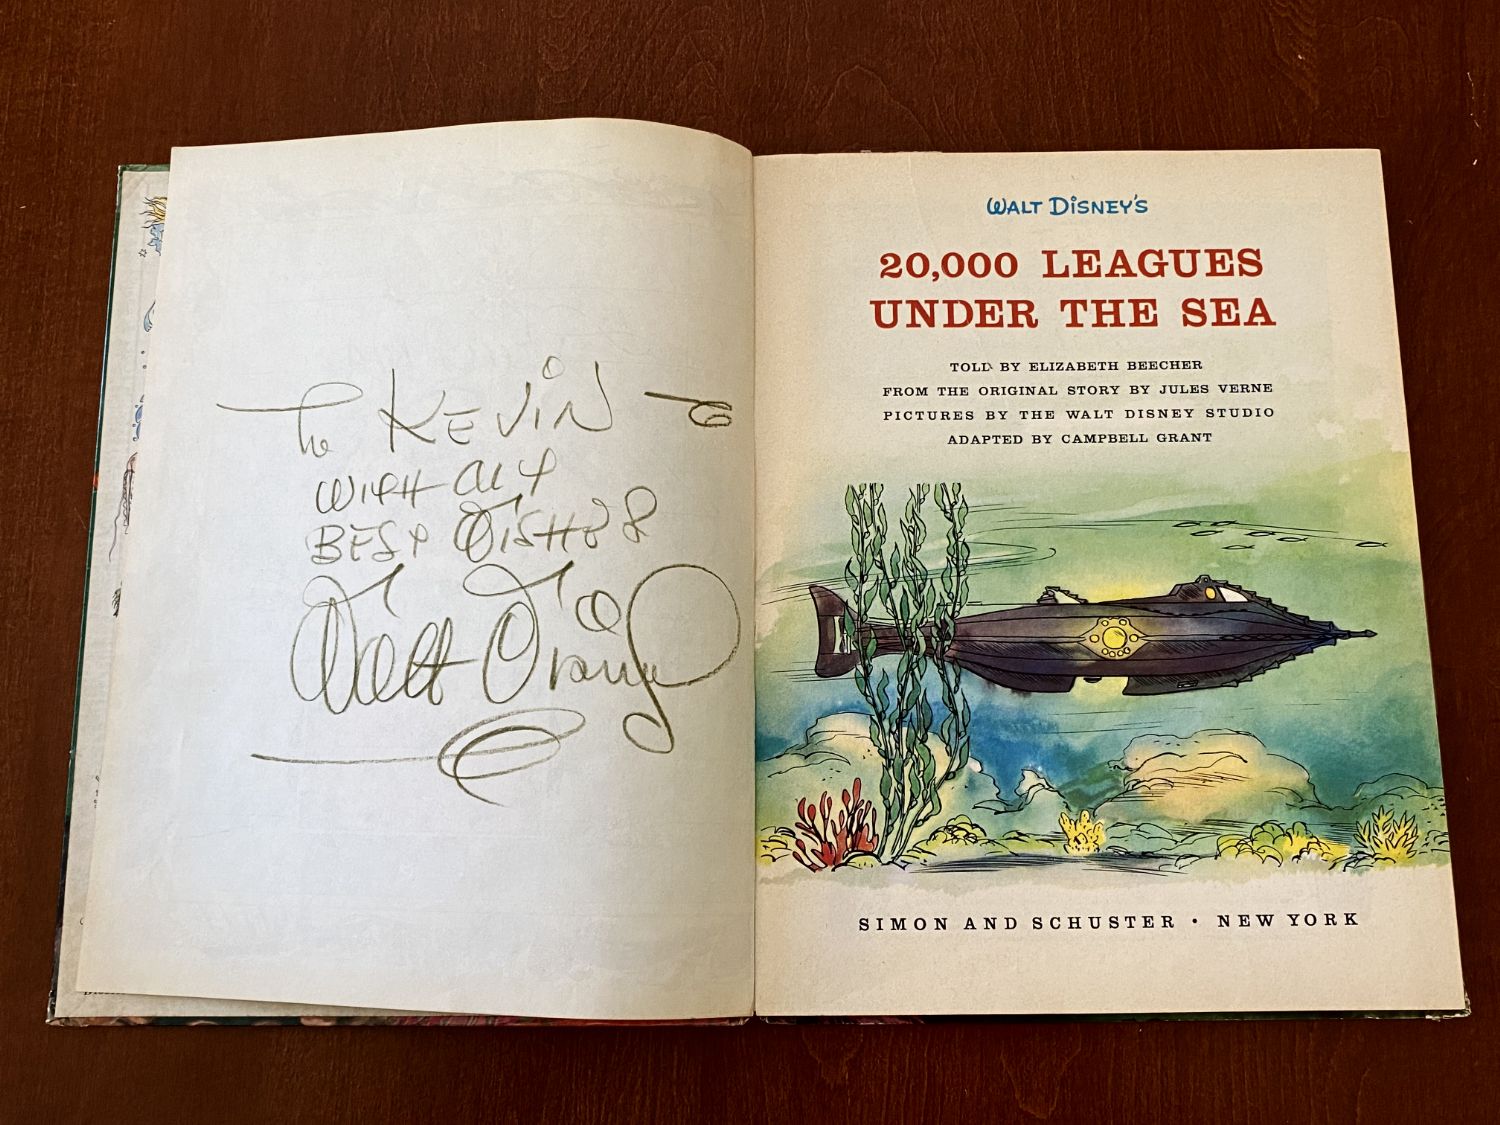 To KEVIN
WITH ALL
BEST WISHES
Walt Disney
WALT DISNEY'S
20,000 LEAGUES
UNDER THE SEA
TOLD BY ELIZABETH BEECHER
FROM THE ORIGINAL STORY BY JULES VERNE
PICTURES BY THE WALT DISNEY STUDIO
ADAPTED BY CAMPBELL GRANT
SIMON AND SCHUSTER • NEW YORK